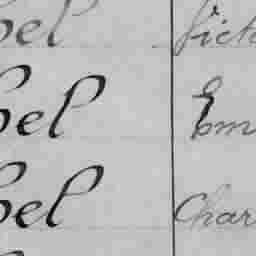 bel fict
bel Em
bel Char